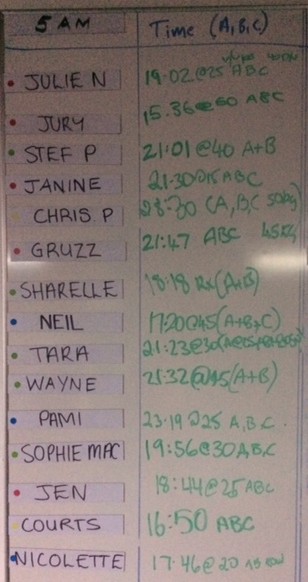 5 AM Time (A,B,C)
JULIE N 19:02@25 ABC
JURY 15:36@60 ABC
STEF P 21:01@40 A+B
JANINE 21:30@15 ABC
CHRIS P 28:30 (A,B,C 50kg)
GRUZZ 21:47 ABC 45kg
SHARELLE 18:18 Rx(A+B)
NEIL 17:20@45(A+B+C)
TARA 21:23@30
WAYNE 21:32@45(A+B)
PAMI 23:19@25 A,B,C.
SOPHIE MAC 19:56@30A,B,C
JEN 18:44@25 ABC
COURTS 16:50 ABC
NICOLETTE 17:46@20